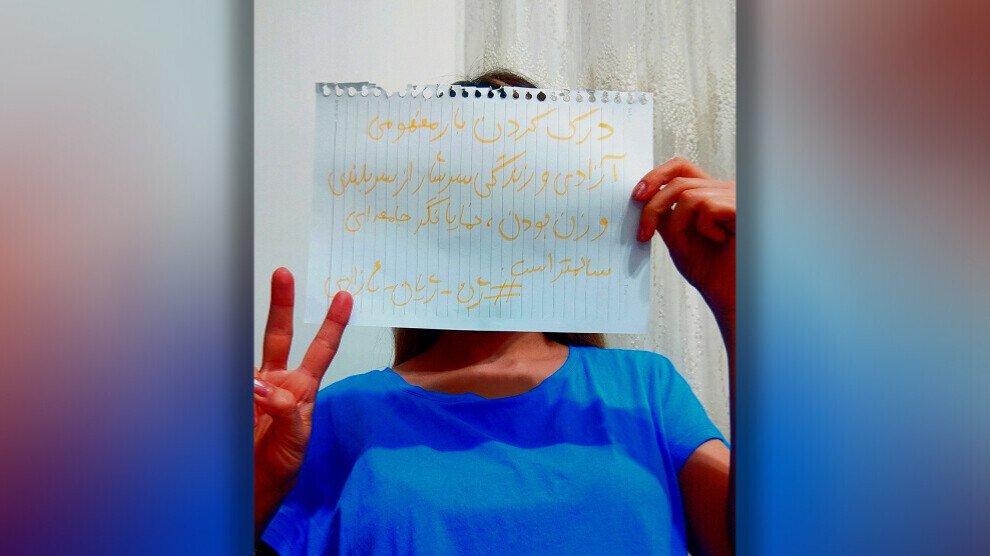 درک کردن بار مفهومی
آزادی و زندگی سرشار از سربلندی
و زن بودن، نمایانگر جامعه‌ای
سالمتر است
#ژن-ژیان-ئازادی